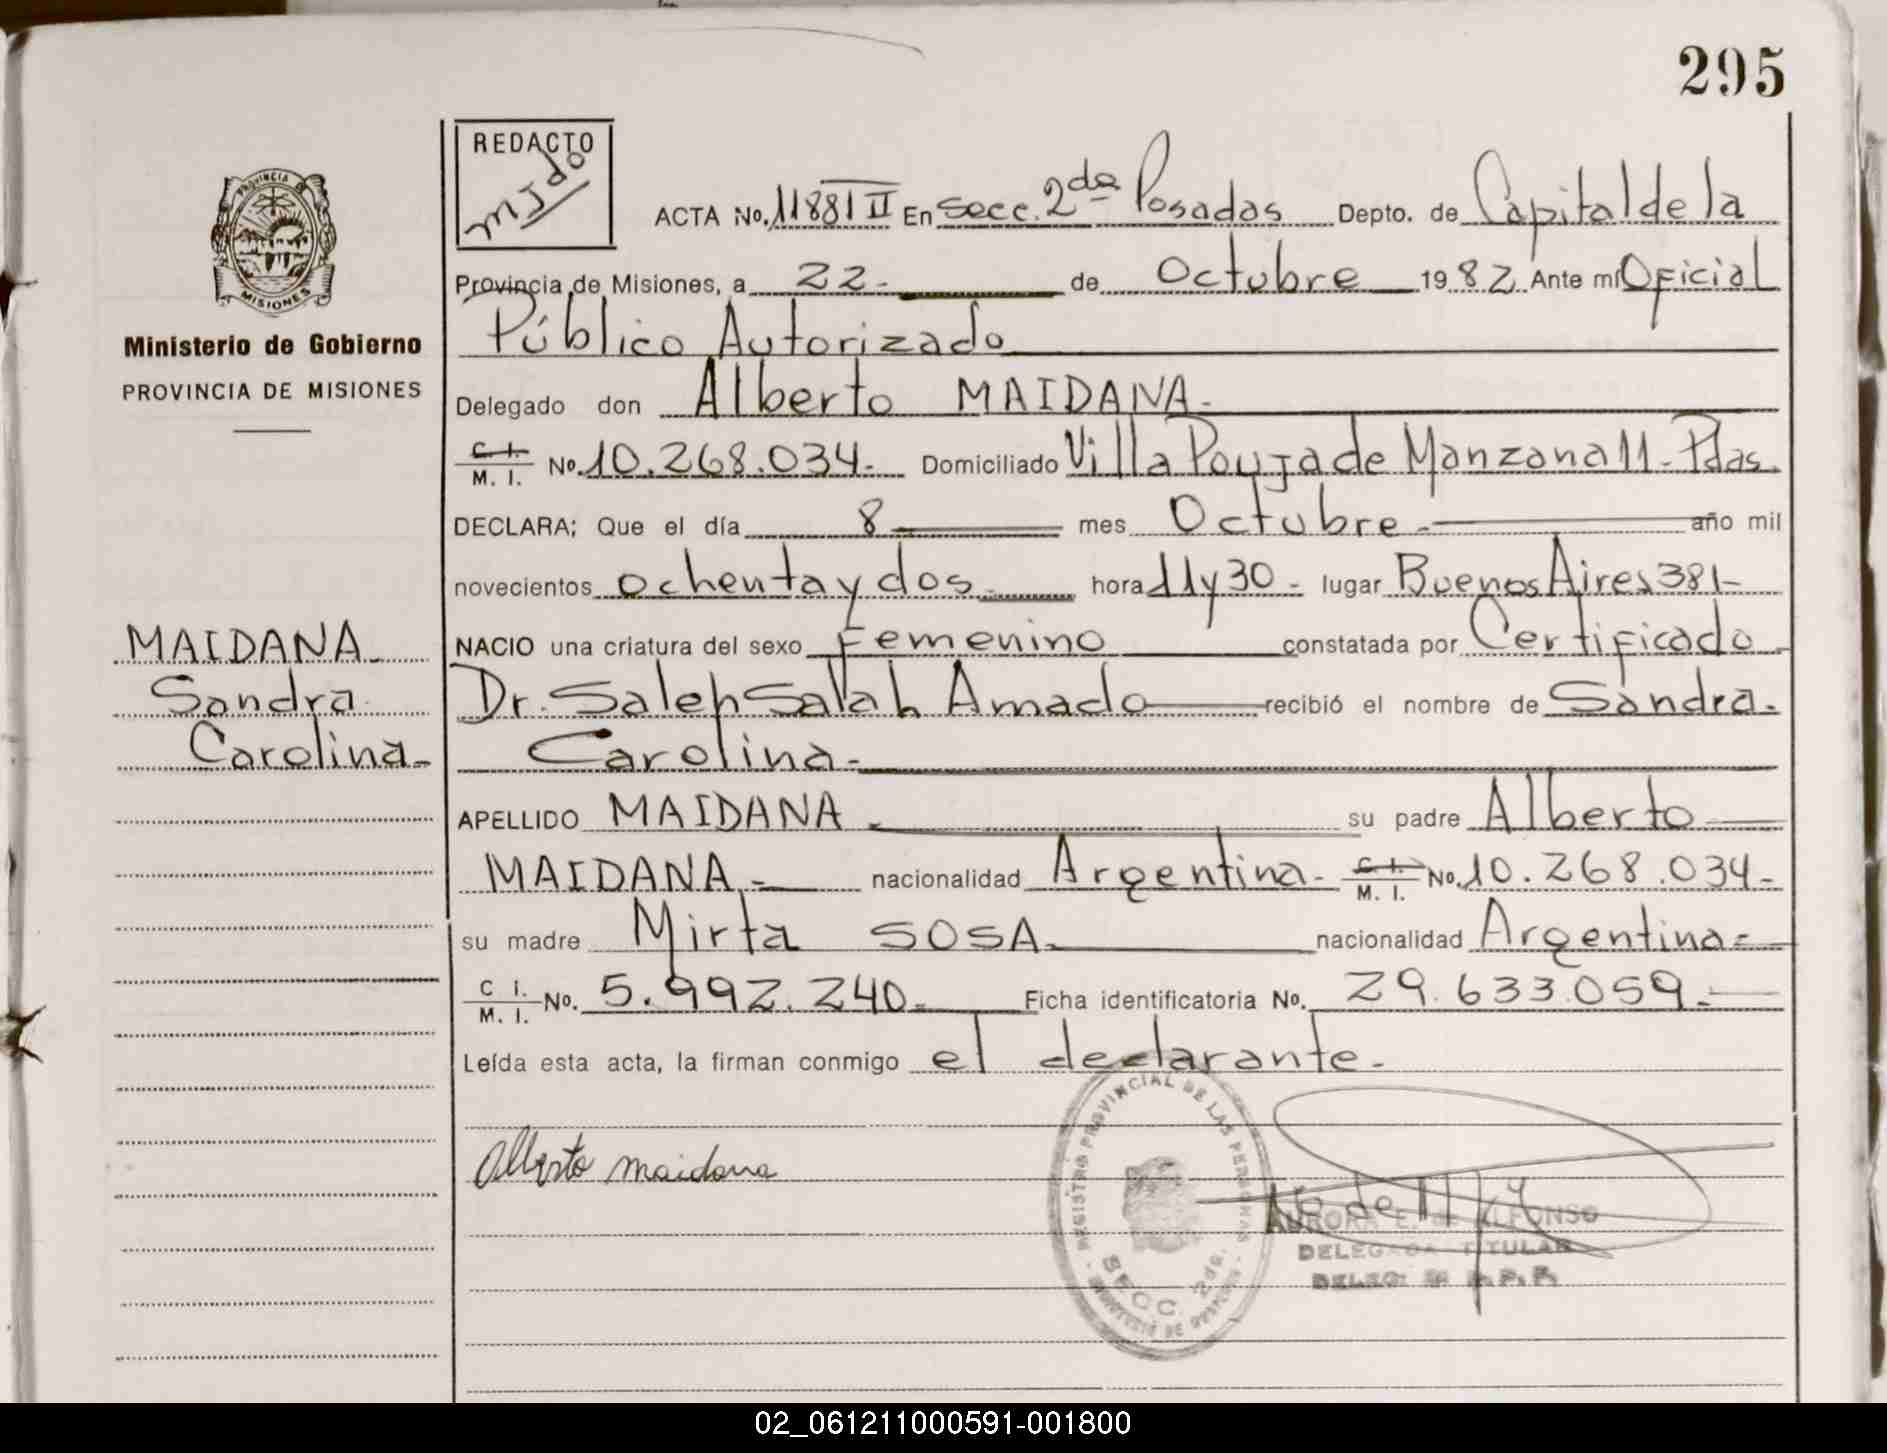 295
REDACTO
PROVINCIA DE
MISIONES
Ministerio de Gobierno
PROVINCIA DE MISIONES
ACTA No. 1188 I II En Secc. 2da Posadas Depto. de Capital de la
Provincia de Misiones, a 22.- de Octubre 1982 Ante mi Oficial
Público Autorizado
Delegado don Alberto MAIDANA.
C. I. M. I. No. 10.268.034.- Domiciliado Villa Poujade Manzana 11.- Pdas.
DECLARA; Que el día 8 mes Octubre.- año mil
novecientos ochenta y dos.- hora 11 y 30 - lugar Buenos Aires 381-
NACIO una criatura del sexo Femenino constatada por Certificado
Dr. Saleh Salah Amado recibió el nombre de Sandra.
Carolina.-
APELLIDO MAIDANA.- su padre Alberto
MAIDANA.- nacionalidad Argentina.- C. I. M. I. No. 10.268.034.-
su madre Mirta SOSA.- nacionalidad Argentina.-
C I. M. I. No. 5.992.240.- Ficha identificatoria No. 29.633.059.-
Leída esta acta, la firman conmigo el declarante.-
MAIDANA
Sandra
Carolina-
Alberto maidana
REGISTRO PROVINCIAL DE LAS PERSONAS
SECC. 2da.
AURORA E. de ALFONSO
DELEGADA TITULAR
02_061211000591-001800